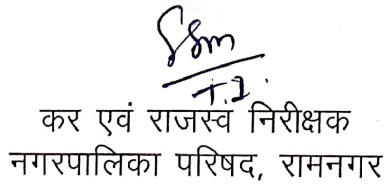 T.I.
कर एवं राजस्व निरीक्षक
नगरपालिका परिषद, रामनगर